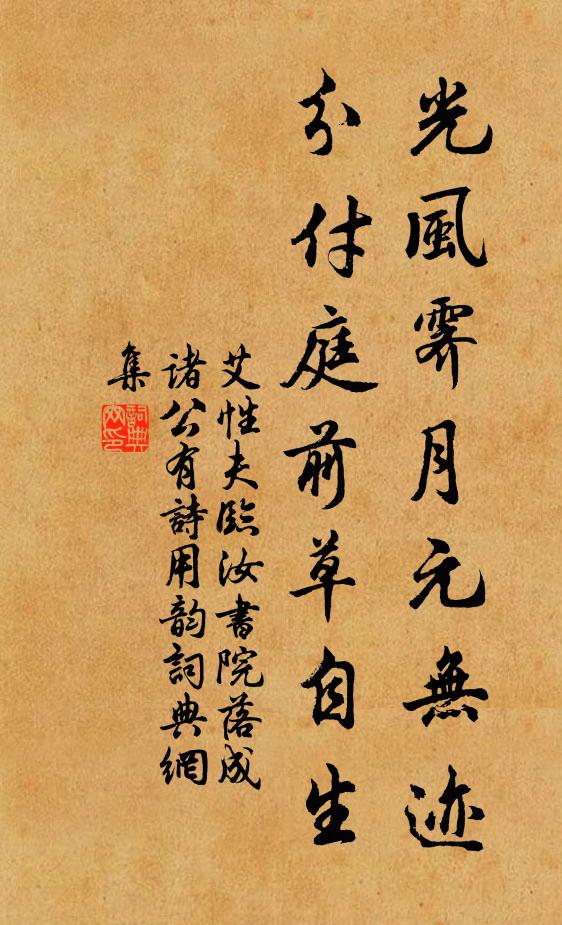 光風霽月元無迹
分付庭前草自生
艾性夫臨汝書院落成
諸公有詩用韵詞典網
集
詞典網印